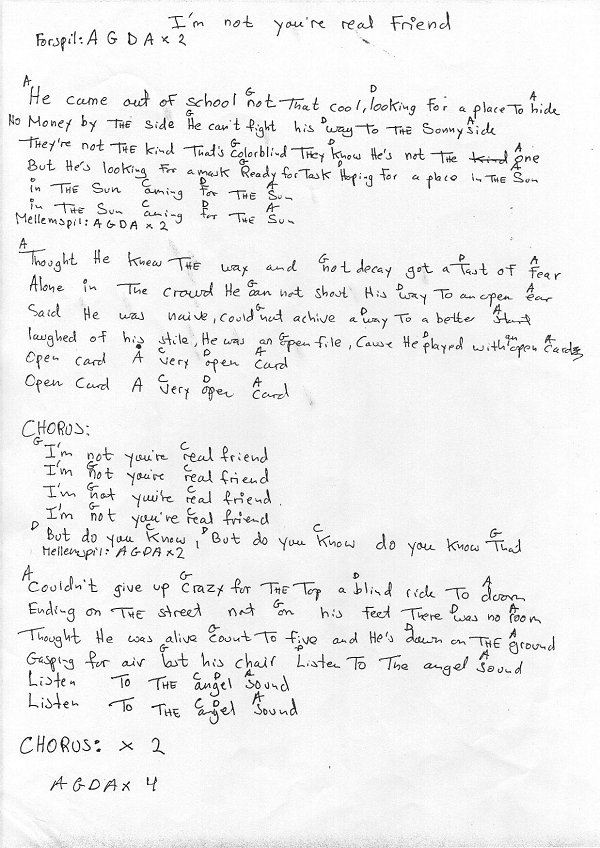 I'm not you're real Friend
Forspil: A G D A x 2
A G D A
He came out of school not That cool, looking For a place To hide
G D A
No Money by THE side He can't fight his way To THE Sonny side
G D A
They're not THE kind That's Colorblind They Know He's not THE kind one
G D A
But He's looking For a mask Ready for Task Hoping For a place In THE Sun
C D A
in THE Sun aming for THE Sun
C D A
in THE Sun aming for THE Sun
Mellemspil: A G D A x 2
A G D A
Thought He Knew THE way and not decay got a Tast of Fear
G D A
Alone in The crowd He can not shout His way To an open ear
G D A
Said He was naive, could not achive a way To a better Start
G D an A
laughed of his stile, He was an open file, Cause He played with open Cards
C D A
Open card A very open Card
C D A
Open Card A very open Card
CHORUS:
G C
I'm not you're real friend
G C
I'm not you're real friend
G C
I'm not you're real friend.
G C
I'm not you're real friend
D C D C G
But do you Know, But do you Know do you Know That
Mellemspil: A G D A x 2
A G D A
Couldn't give up Crazy for THE Top a blind ride To doom
G D A
Ending on THE street not on his feet There was no room
G D A
Thought He was alive Count To five and He's down on THE ground
G D A
Gasping for air last his chair Listen To The angel Sound
C D A
Listen To THE angel Sound
C D A
Listen To THE angel Sound
CHORUS: x 2
A G D A x 4